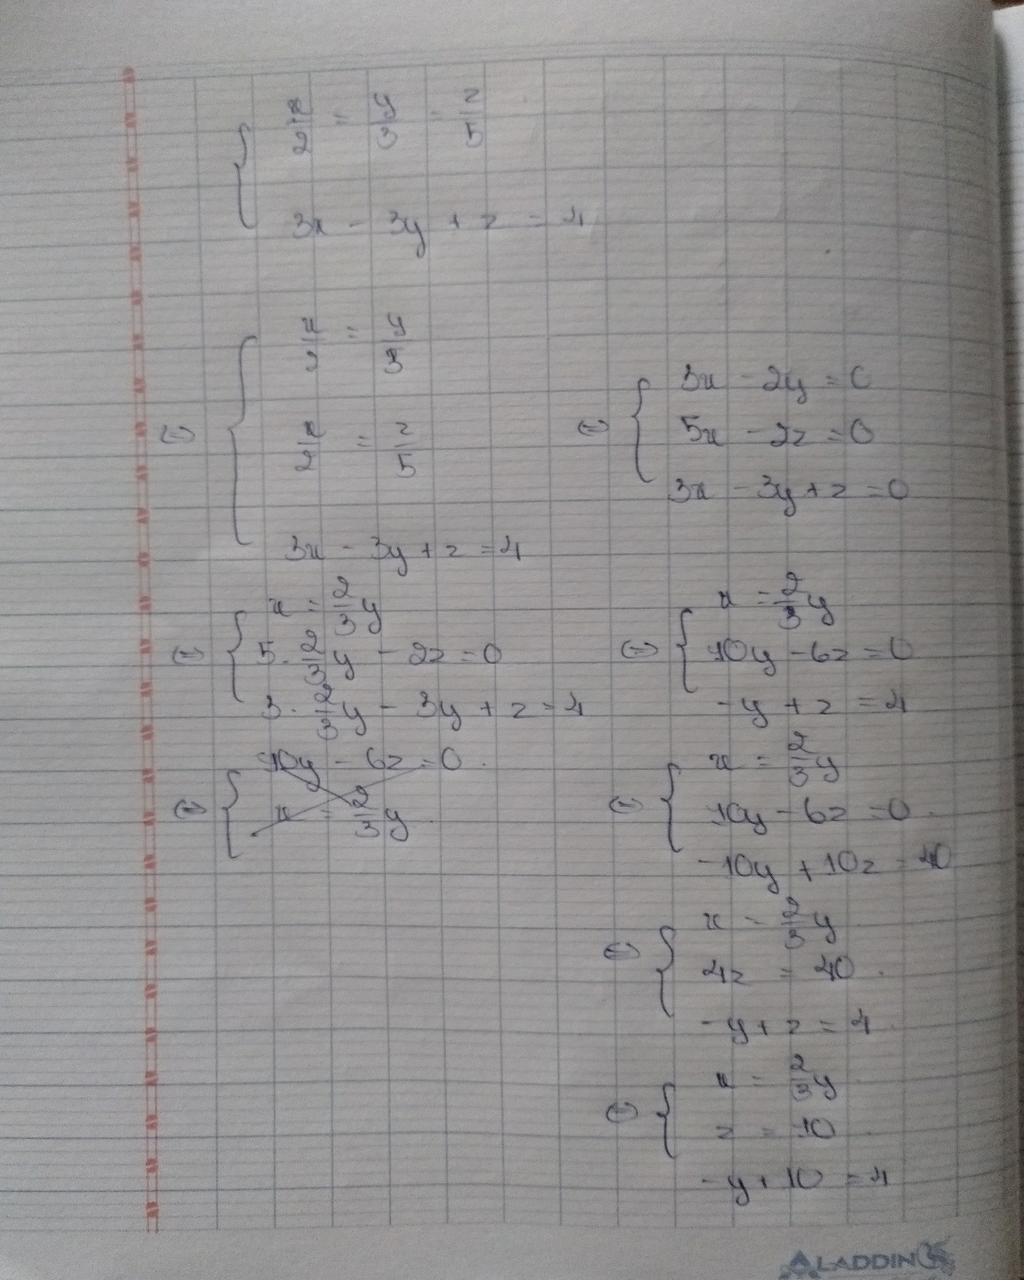 { x/2 = y/3 = z/5
3x - 3y + z = 4
⇔ { x/2 = y/3
x/2 = z/5
3x - 3y + z = 4
⇔ { 3x - 2y = 0
5x - 2z = 0
3x - 3y + z = 0
⇔ { x = 2/3 y
5. 2/3 y - 2z = 0
3. 2/3 y - 3y + z = 4
⇔ { x = 2/3 y
10y - 6z = 0
-y + z = 4
⇔ { 10y - 6z = 0.
x = 2/3 y
⇔ { x = 2/3 y
10y - 6z = 0.
-10y + 10z = 40
⇔ { x = 2/3 y
4z = 40.
-y + z = 4.
⇔ { x = 2/3 y
z = 10
-y + 10 = 4
ALADDIN